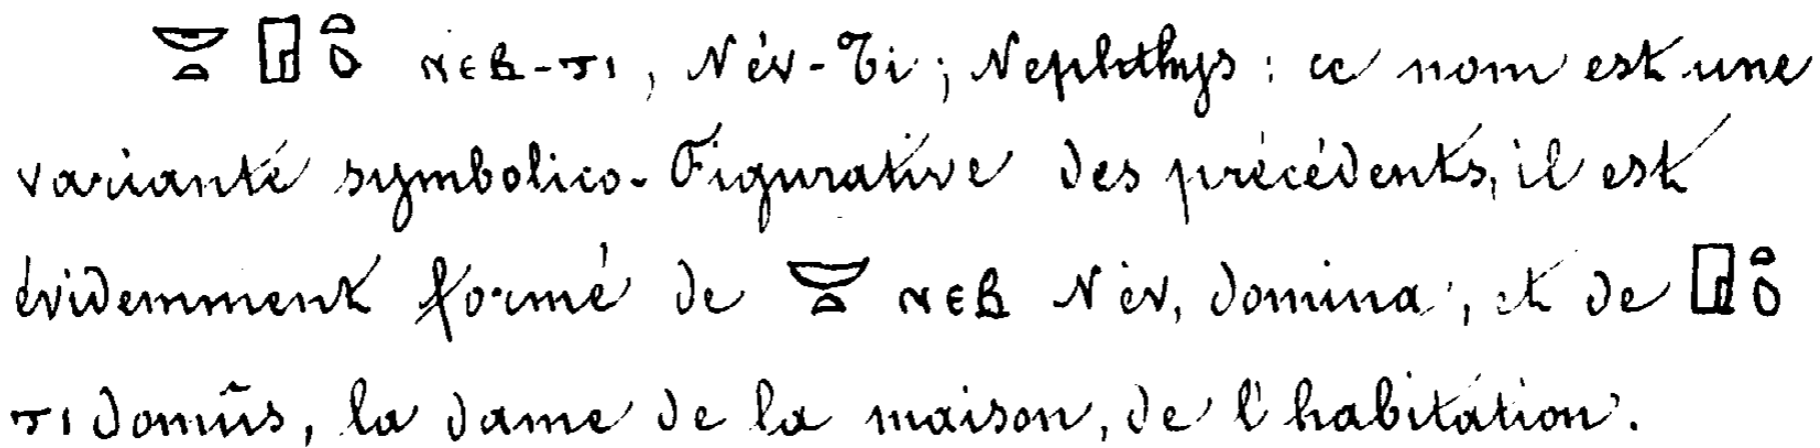 𓎟𓏏 𓉗𓏏𓆇 ⲛⲉⲃ-ϯⲓ, Név-Ti; Nephthys: ce nom est une
variante symbolico-Figurative des précédents, il est
évidemment formé de 𓎟𓏏 ⲛⲉⲃ Név, domina, et de 𓉗𓏏𓆇
ⲧⲓ domûs, la dame de la maison, de l'habitation.